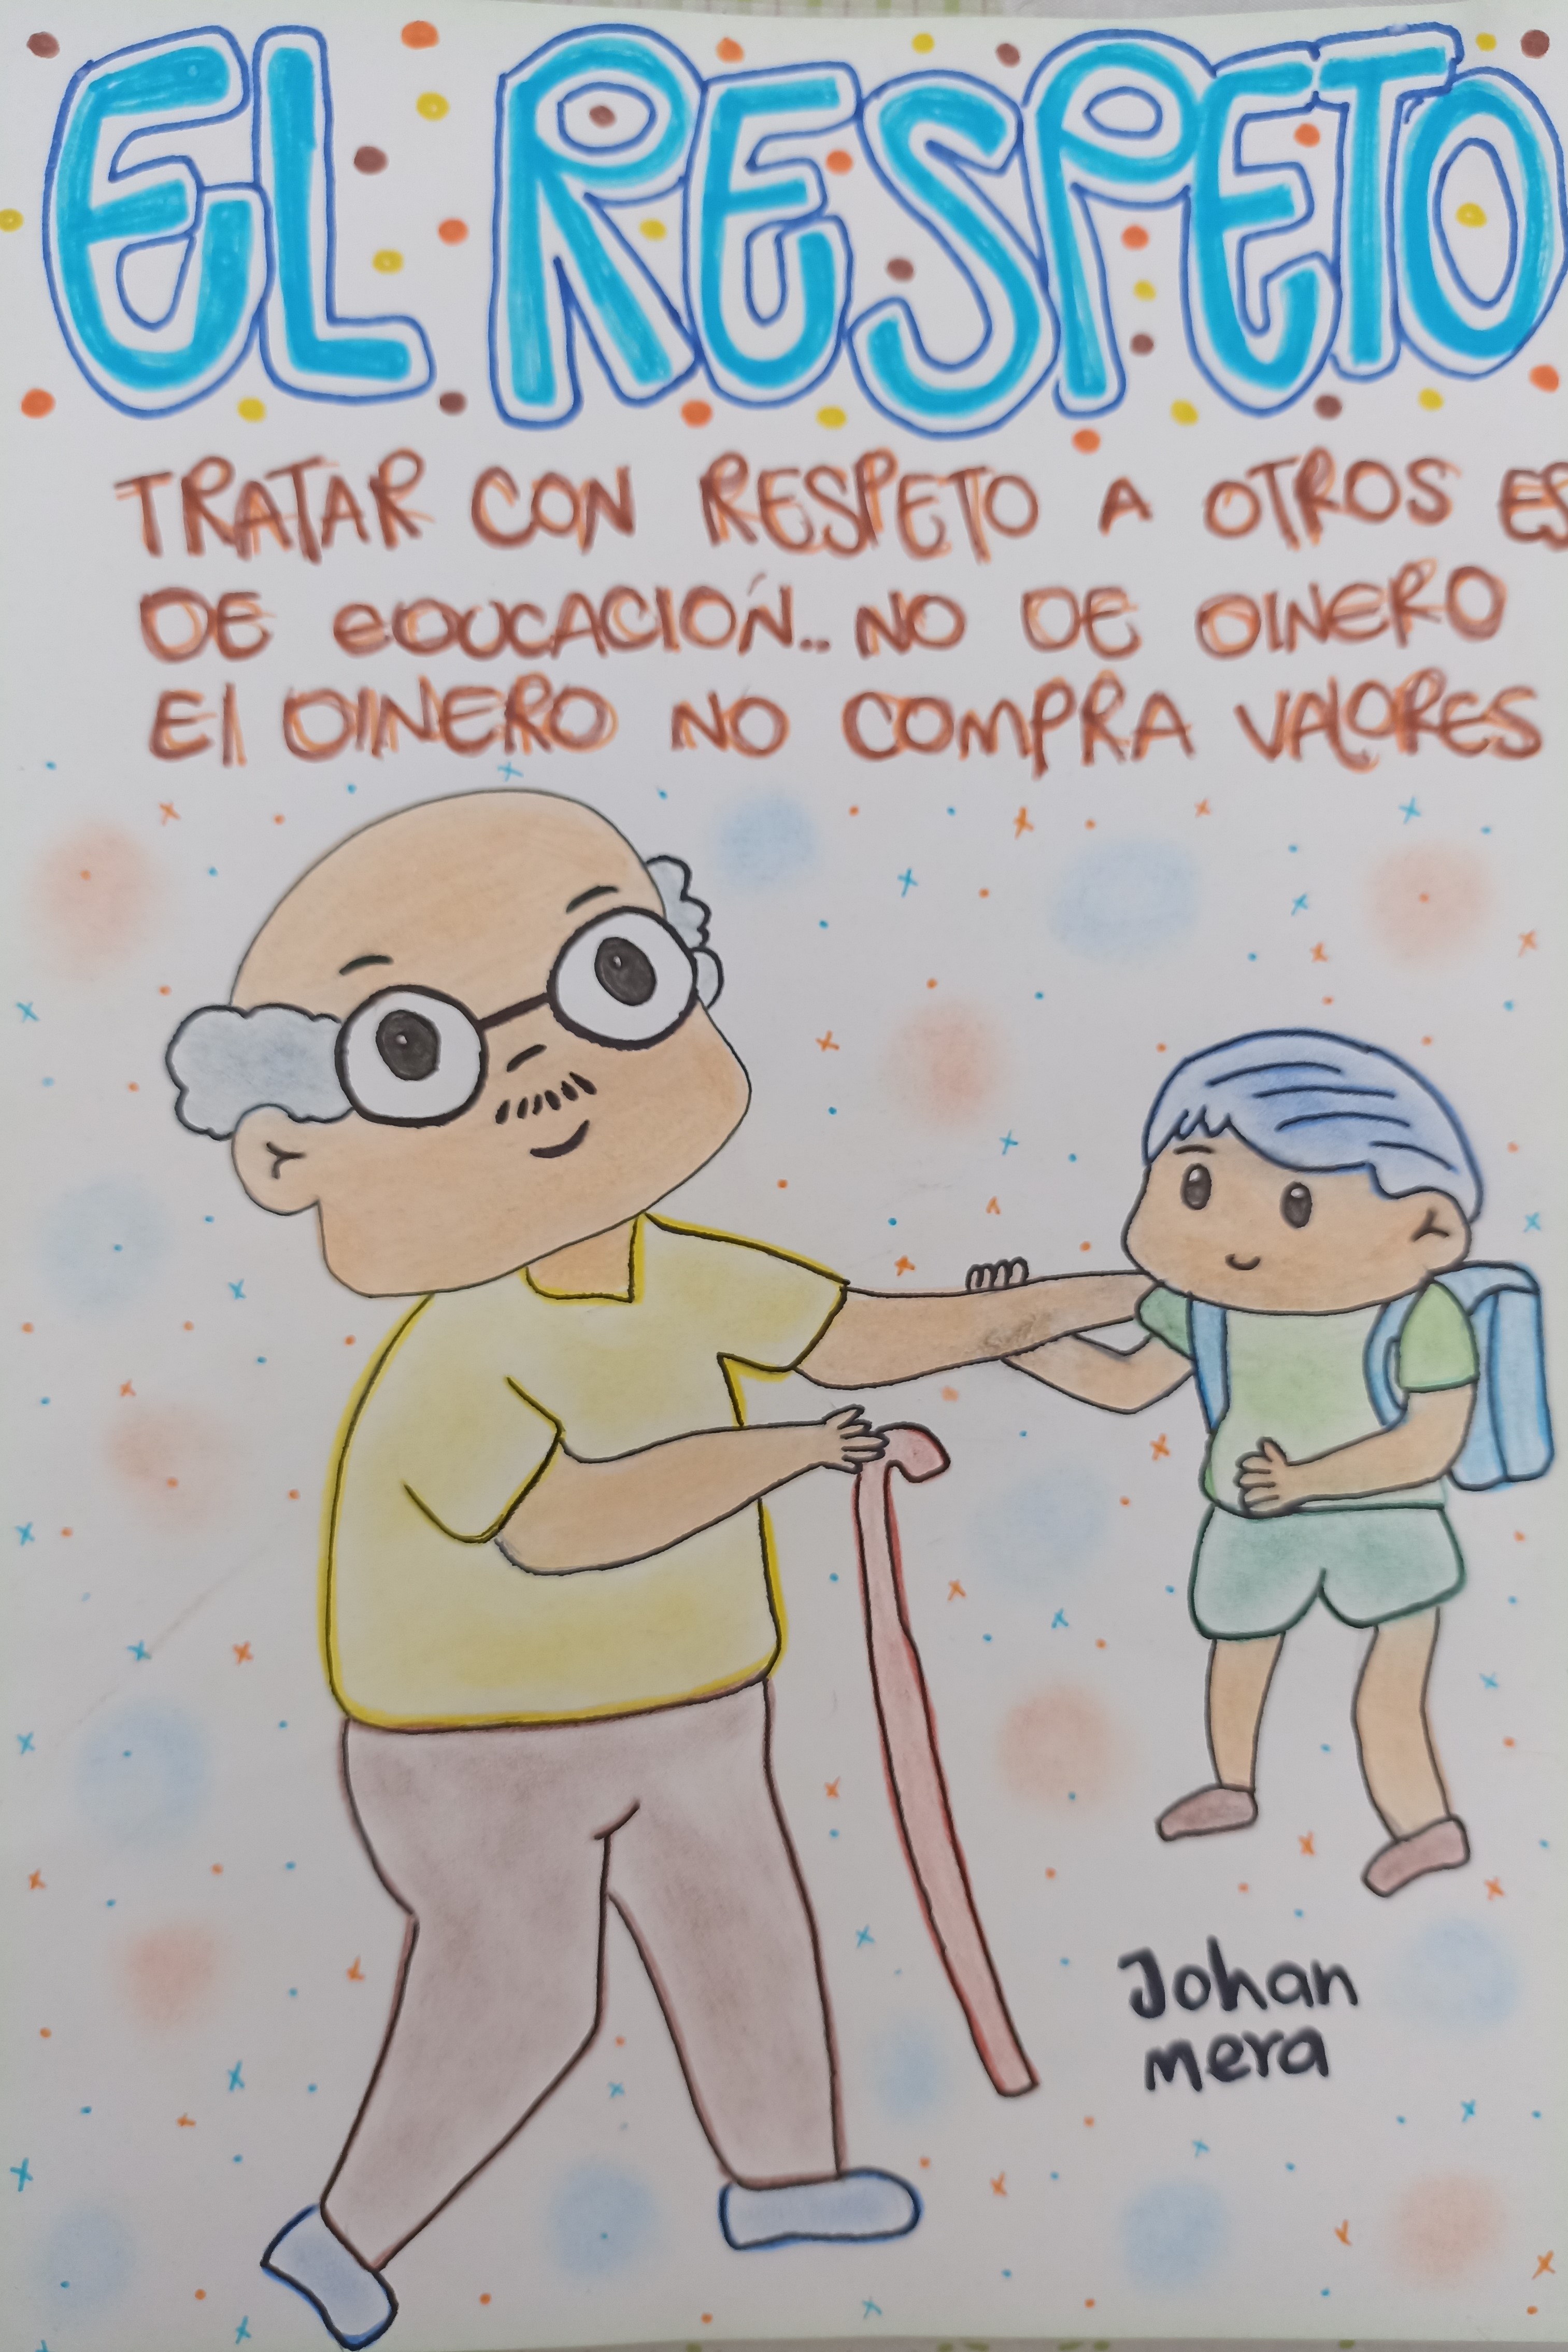 EL RESPETO
TRATAR CON RESPETO A OTROS ES
DE eDUCACIÓN.. NO DE DINERO
El DINERO NO COMPRA VALORES
Johan
mera